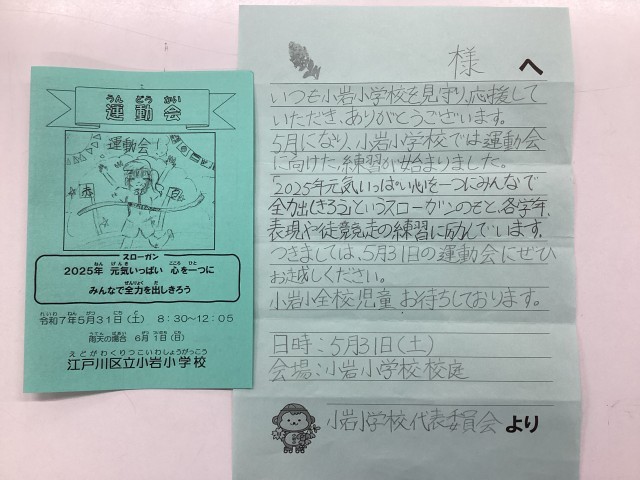 うん どう かい
運動会
運動会!
スローガン
ねん げんき こころ ひと
2025年 元気いっぱい 心を一つに
ぜんりょく だ
みんなで全力を出しきろう
れいわ ねん がつ にち ど
令和7年5月31日(土) 8:30~12:05
うてん ばあい がつ にち にち
雨天の場合 6月1日(日)
えどがわくりつこいわしょうがっこう
江戸川区立小岩小学校
様 へ
いつも小岩小学校を見守り、応援して
いただき、ありがとうございます。
5月になり、小岩小学校では運動会
に向けた、練習が始まりました。
「2025年元気いっぱい心を一つにみんなで
全力出しきろう」というスローガンのもと、各学年、
表現や徒競走の練習に励んでいます。
つきましては、5月31日の運動会にぜひ
お越しください。
小岩小全校児童 お待ちしております。
日時:5月31日(土)
会場:小岩小学校校庭
小岩小学校代表委員会より